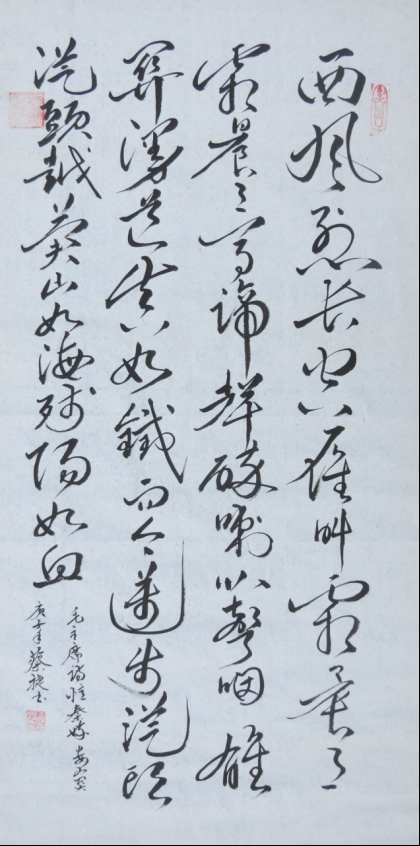 西风烈长空雁叫霜晨月
霜晨月马蹄聲碎喇叭聲咽雄
關漫道真如鐵而今邁步從頭
從頭越蒼山如海残陽如血
毛主席词憶秦娥娄山关
庚年蔡捷书